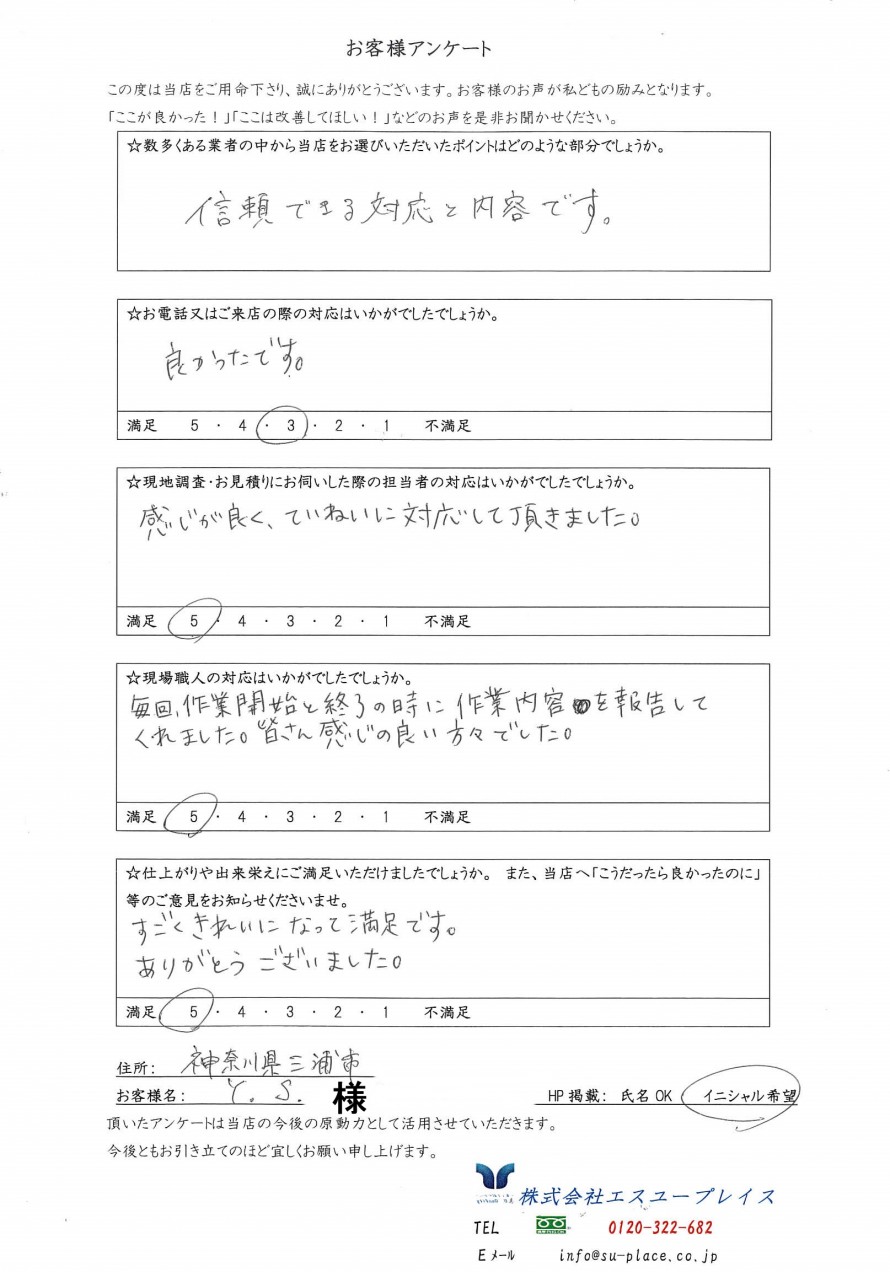 お客様アンケート
この度は当店をご用命下さり、誠にありがとうございます。お客様のお声が私どもの励みとなります。
「ここが良かった！」「ここは改善してほしい！」などのお声を是非お聞かせください。
☆数多くある業者の中から当店をお選びいただいたポイントはどのような部分でしょうか。
信頼できる対応と内容です。
☆お電話又はご来店の際の対応はいかがでしたでしょうか。
良かったです。
満足 5 ・ 4 ・ 3 ・ 2 ・ 1 不満足
☆現地調査・お見積りにお伺いした際の担当者の対応はいかがでしたでしょうか。
感じが良く、ていねいに対応して頂きました。
満足 5 ・ 4 ・ 3 ・ 2 ・ 1 不満足
☆現場職人の対応はいかがでしたでしょうか。
毎回、作業開始と終了の時に作業内容を報告して
くれました。皆さん感じの良い方々でした。
満足 5 ・ 4 ・ 3 ・ 2 ・ 1 不満足
☆仕上がりや出来栄えにご満足いただけましたでしょうか。 また、当店へ「こうだったら良かったのに」
等のご意見をお知らせくださいませ。
すごくきれいになって満足です。
ありがとうございました。
満足 5 ・ 4 ・ 3 ・ 2 ・ 1 不満足
住所： 神奈川県三浦市
お客様名： Y. S. 様 HP掲載： 氏名OK イニシャル希望
頂いたアンケートは当店の今後の原動力として活用させていただきます。
今後ともお引き立てのほど宜しくお願い申し上げます。
株式会社エスユープレイス
TEL 0120-322-682
Eメール info@su-place.co.jp